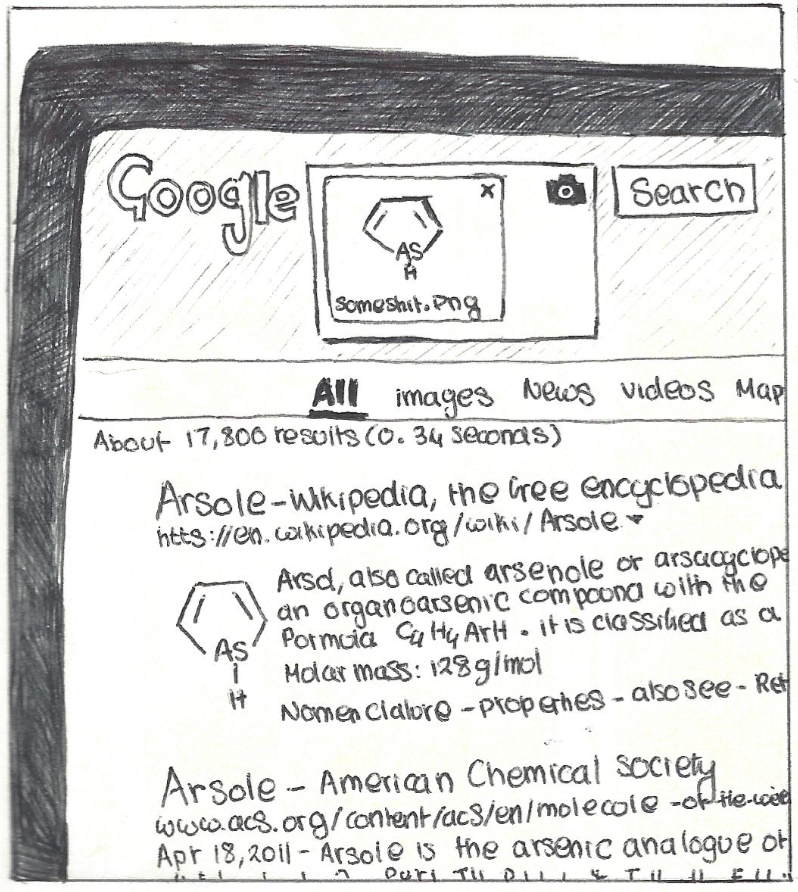 Google
x
AS
H
someshit.png
Search
All images News videos Map
About 17,800 results (0.34 seconds)
Arsole-Wikipedia, the free encyclopedia
htts://en.wikipedia.org/wiki/Arsole
Arsol, also called arsenole or arsacyclope
an organoarsenic compound with the
Formula C4H4ArH. it is classified as a
Molar mass: 128g/mol
Nomenclature - properties - also see - Ref
AS
H
Arsole - American Chemical society
www.acs.org/content/acs/en/molecole-of-the-wee
Apr 18, 2011 - Arsole is the arsenic analogue of